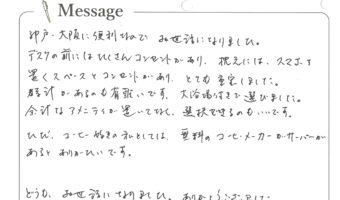 Message
神戸・大阪に便利なので お世話になりました。
デスクの前にはたくさんコンセントがあり、枕元には、スマホを
置くスペースとコンセントがあり、とても重宝しました。
時計があるのも有難いです。大浴場付きで選びました。
余計なアメニティが置いてなく、選択できるのもいいです。
ただ、コーヒー好きの私としては、無料のコーヒーメーカーかサーバーが
あると ありがたいです。
どうも、お世話になりました。ありがとうございました。